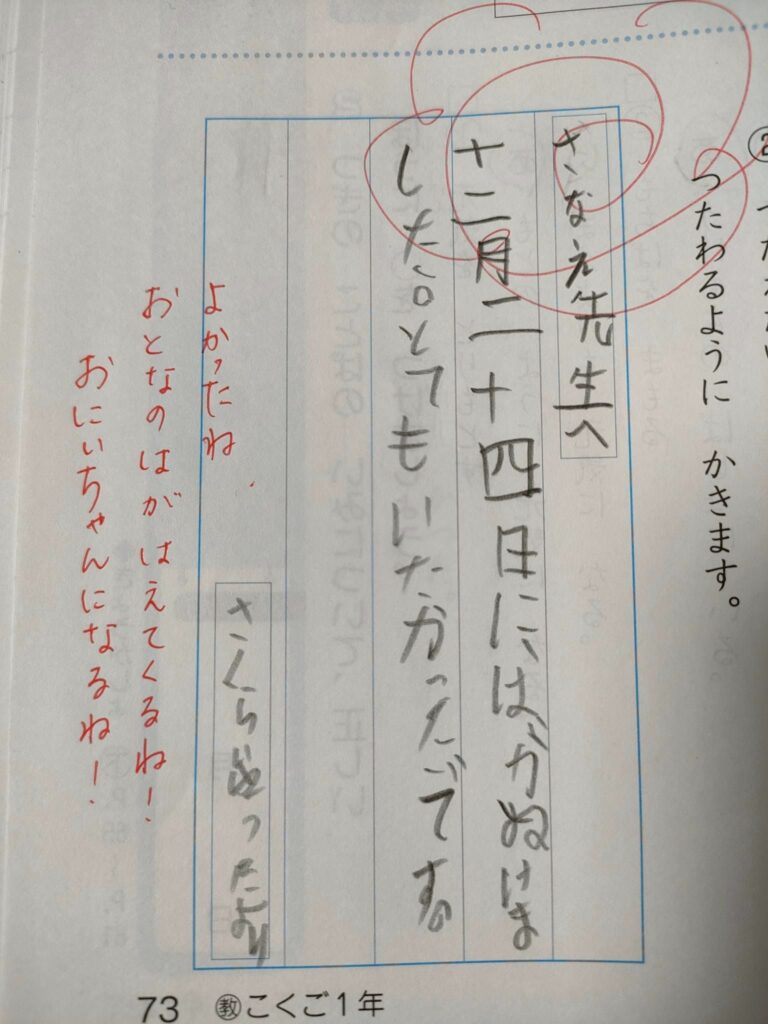 つたわるように かきます。
さなえ先生へ
十二月二十四日にはがぬけま
した。とてもいたかったでです。
さくら
より
よかったね
おとなのはがはえてくるね!
おにいちゃんになるね!
73 教こくご1年